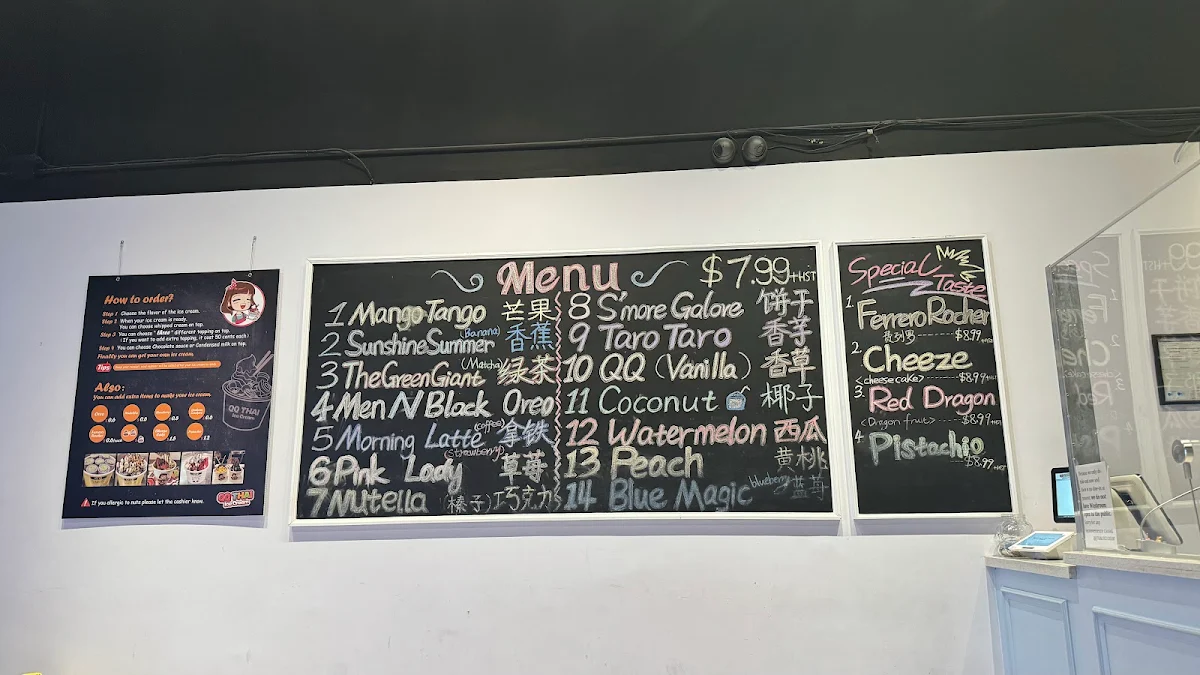 How to order?
Step 1 Choose the flavor of the ice cream.
Step 2 When your ice cream is ready.
You can choose whipped cream on top.
Step 3 You can choose "Three" different topping on top.
(If you want to add extra topping, it cost 50 cents each)
Step 4 You can choose Chocolate sauce or Condensed milk on top.
Finally you can get your own ice cream.
Tips
Also:
You can add extra items to make your ice cream.
QQ THAI
Ice Cream
If you allergic to nuts please let the cashier know.
QQ THAI
Menu
$7.99+HST
1 Mango Tango 芒果
2 Sunshine Summer (Banana) 香蕉
3 The Green Giant (Matcha) 绿茶
4 Men N Black Oreo
5 Morning Latte (coffee) 拿铁
6 Pink Lady (strawberry) 草莓
7 Nutella 榛子巧克力
8 S'more Galore 饼干
9 Taro Taro 香芋
10 QQ (Vanilla) 香草
11 Coconut 椰子
12 Watermelon 西瓜
13 Peach 黄桃
14 Blue Magic blueberry 蓝莓
Special Taste
1. Ferrero Rocher
费列罗 $8.99+HST
2. Cheeze
<cheese cake> $8.99+HST
3. Red Dragon
<Dragon fruit> $8.99+HST
4 Pistachio
$8.99+HST